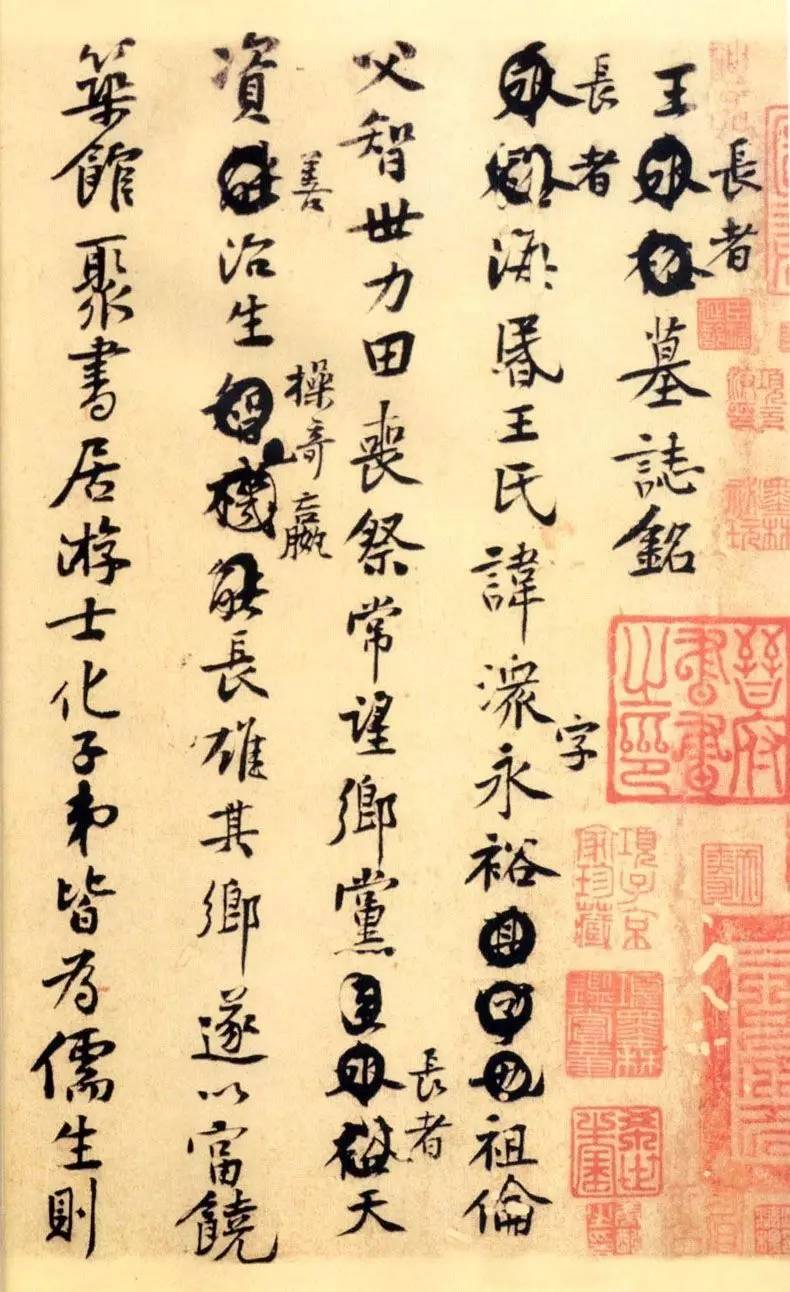 王長者墓誌銘
長者海昬王氏諱潨字永裕祖倫
父智世力田喪祭常望鄉黨長者天
資善治生操奇贏長雄其鄉遂以富饒
築館聚書居游士化子弟皆為儒生則
晉府書畫之印
項子京家珍藏